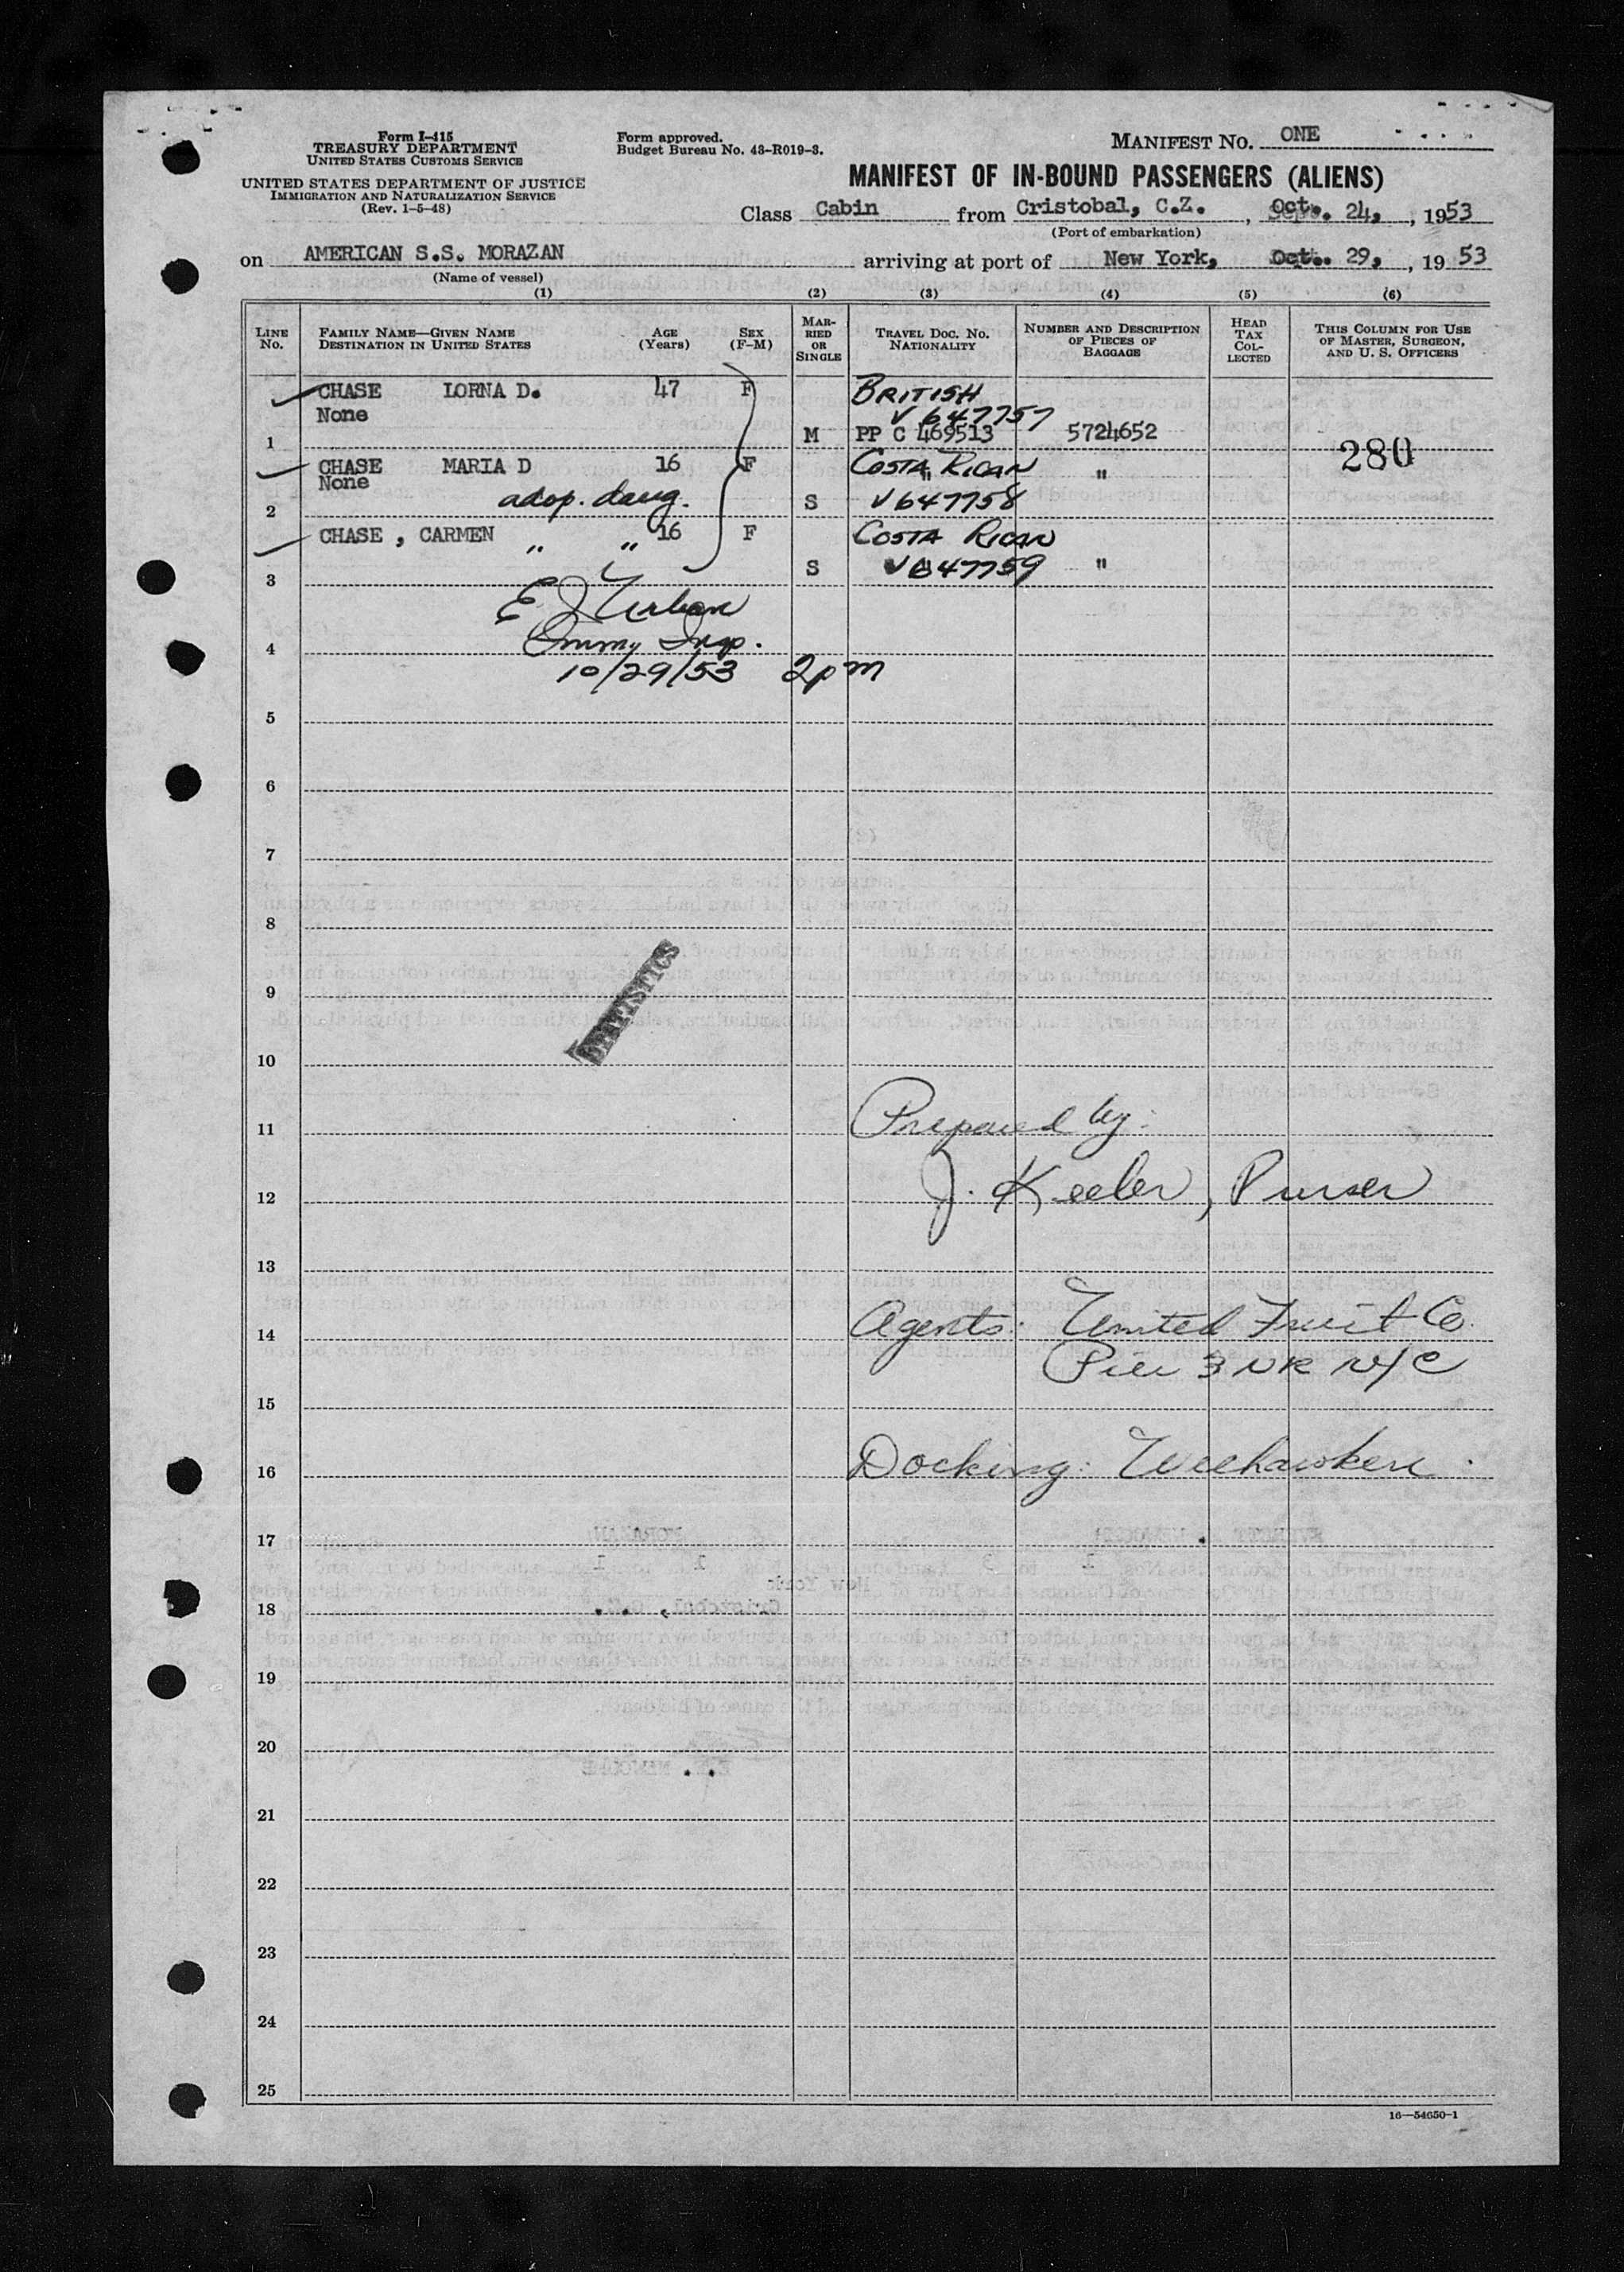 Form I-415
TREASURY DEPARTMENT
UNITED STATES CUSTOMS SERVICE
UNITED STATES DEPARTMENT OF JUSTICE
IMMIGRATION AND NATURALIZATION SERVICE
(Rev. 1-5-48)
Form approved.
Budget Bureau No. 43-R019-3.
MANIFEST NO. ONE
MANIFEST OF IN-BOUND PASSENGERS (ALIENS)
Class Cabin from Cristobal, C.Z., Oct. 24, , 1953
(Port of embarkation)
on AMERICAN S.S. MORAZAN arriving at port of New York, Oct. 29, , 19 53
(Name of vessel)
(1) (2) (3) (4) (5) (6)
LINE No. FAMILY NAME—GIVEN NAME DESTINATION IN UNITED STATES AGE (Years) SEX (F-M) MARRIED OR SINGLE TRAVEL DOC. NO. NATIONALITY NUMBER AND DESCRIPTION OF PIECES OF BAGGAGE HEAD TAX COLLECTED THIS COLUMN FOR USE OF MASTER, SURGEON, AND U. S. OFFICERS
CHASE LORNA D. 47 F BRITISH
None V 647757
1 M PP C 469513 5724652 280
CHASE MARIA D 16 F COSTA RICAN "
None
2 adop. daug. S V647758
CHASE , CARMEN 16 F COSTA RICAN
" "
3 S V647759 "
E J Urban
4 Immig Insp.
10/29/53 2pm
5
6
7
8
9
STATISTICS
10
11 Prepared by:
12 J. Keeler, Purser
13
14 Agents: United Fruit Co.
Pier 3 NR NYC
15
16 Docking: Weehawken
17
18
19
20
21
22
23
24
25
16—54650-1